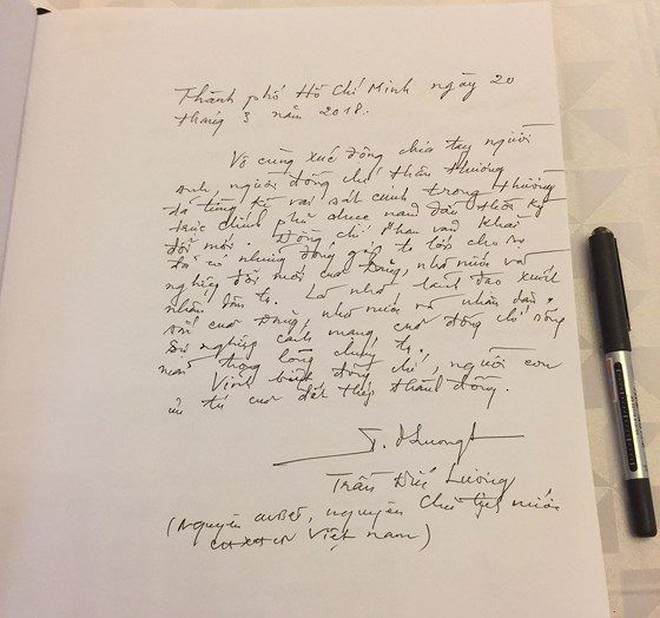 Thành phố Hồ Chí Minh ngày 20
tháng 3 năm 2018.
Vô cùng xúc động chia tay người
anh, người đồng chí thân thương
đã từng kề vai sát cánh trong Thường
trực chính phủ những năm đầu thời kỳ
đổi mới. Đồng chí Phan văn Khải
đã có những đóng góp to lớn cho sự
nghiệp đổi mới của Đảng, nhà nước và
nhân dân ta. Là nhà lãnh đạo xuất
sắc của Đảng, nhà nước và nhân dân,
sự nghiệp cách mạng của đồng chí sống
mãi trong lòng chúng ta.
Vĩnh biệt đồng chí, người con
ưu tú của đất thép thành đồng.
T. Đ Lương
Trần Đức Lương
(Nguyên UVBCT, nguyên Chủ tịch nước
CHXHCN Việt nam)